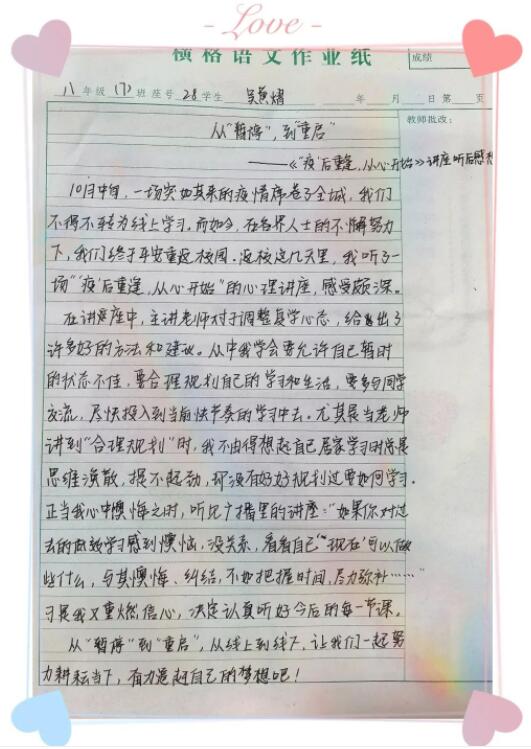 - Love -
横格语文作业纸
成绩
八年级(7)班座号28学生吴 年 月 日第 页
教师批改：
从“暂停”，到“重启”
——《“疫”后重逢，从心开始》讲座听后感
10月中旬，一场突如其来的疫情席卷了全城，我们
不得不转为线上学习。而如今，在各界人士的不懈努力
下，我们终于平安重返校园。返校这几天里，我听了一
场“‘疫’后重逢，从心开始”的心理讲座，感受颇深。
在讲座中，主讲老师对于调整复学心态，给出了
许多好的方法和建议。从中我学会要允许自己暂时
的状态不佳，要合理规划自己的学习和生活，要多与同学
交流，尽快投入到当前快节奏的学习中去。尤其是当老师
讲到“合理规划”时，我不由得想起自己居家学习时总是
思维涣散，提不起劲，却没有好好规划过要如何学习。
正当我心中懊悔之时，听见广播里的讲座：“如果你对过
去的低效学习感到懊恼，没关系，看看自己‘现在’可以做
些什么，与其懊悔、纠结，不如把握时间，尽力弥补……”
于是我又重燃信心，决定认真听好今后的每一节课。
从“暂停”到“重启”，从线上到线下，让我们一起努
力耕耘当下，有力追赶自己的梦想吧！